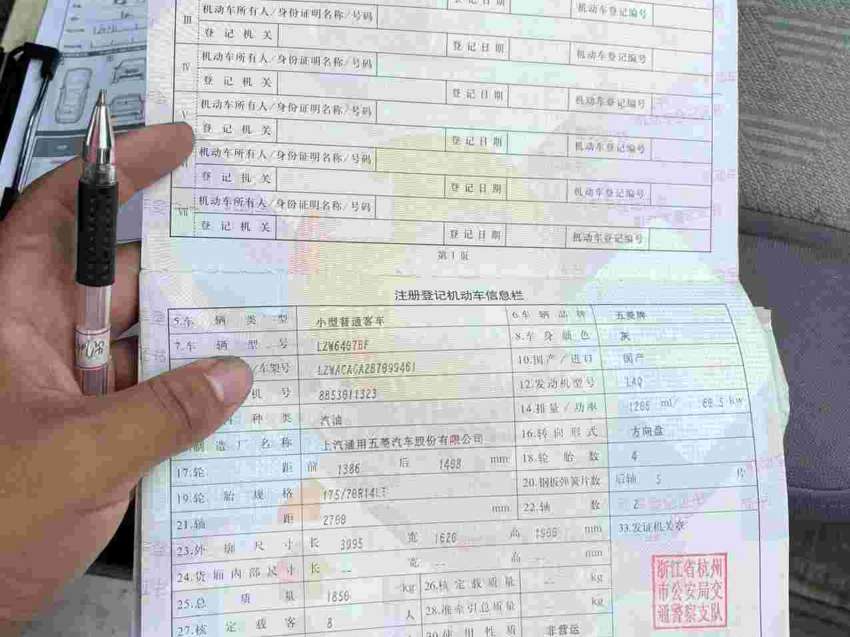 登记日期 机动车登记编号
III 机动车所有人/身份证明名称/号码
登记机关 登记日期 机动车登记编号
IV 机动车所有人/身份证明名称/号码
登记机关 登记日期 机动车登记编号
V 机动车所有人/身份证明名称/号码
登记机关 登记日期 机动车登记编号
机动车所有人/身份证明名称/号码
登记机关 登记日期 机动车登记编号
VII 机动车所有人/身份证明名称/号码
登记机关 登记日期 机动车登记编号
第1页
注册登记机动车信息栏
5.车辆类型 小型普通客车 6.车辆品牌 五菱牌
7.车辆型号 LZW6407BF 8.车身颜色 灰
/车架号 10.国产/进口 国产
机号 8853011323 12.发动机型号 L4Q
种类 汽油 14.排量/功率 ml/ kw
制造厂名称 上汽通用五菱汽车股份有限公司 16.转向形式 方向盘
17.轮距 前 1386 后 1408 mm 18.轮胎数 4
19.轮胎规格 175/70R14LT 20.钢板弹簧片数 后轴 5 片
21.轴距 2700 mm 22.轴数 2
23.外廓尺寸 长 3995 宽 1620 高 mm 33.发证机关章
24.货厢内部尺寸 长 -- 宽 -- 高 -- mm
25.总质量 1850 kg 26.核定载质量 -- kg
27.核定载客 8 人 28.准牵引总质量 -- kg
30.使用性质 非营运
浙江省杭州
市公安局交
通警察支队